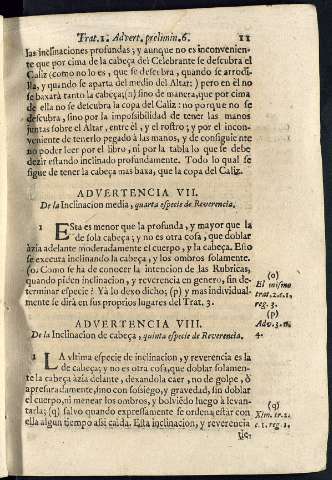 Trat.1. Advert. prelimin. 6. 11
las inclinaciones profundas; y aunque no es inconvenien-
te que por cima de la cabeça del Celebrante se descubra el
Caliz (como no lo es, que se descubra, quando se arrodi-
lla, y quando se aparta del medio del Altar:) pero en èl no
se baxarà tanto la cabeça;(n) sino de manera, que por cima
de ella no se descubra la copa del Caliz: no porque no se
descubra, sino por la impossibilidad de tener las manos
juntas sobre el Altar, entre èl, y el rostro; y por el incon-
veniente de tenerlo pegado à las manos, y de consiguiente
no poder leer por el libro, ni por la tabla lo que se debe
dezir estando inclinado profundamente. Todo lo qual se
sigue de tener la cabeça mas baxa, que la copa del Caliz.
ADVERTENCIA VII.
De la Inclinacion media, quarta especie de Reverencia.
1 Esta es menor que la profunda, y mayor que la
de sola cabeça; y no es otra cosa, que doblar
àzia adelante moderadamente el cuerpo, y la cabeça. Esto
se executa inclinando la cabeça, y los ombros solamente.
(o. Como se ha de conocer la intencion de las Rubricas,
quando piden inclinacion, y reverencia en genero, sin de-
terminar especie? Yà lo dexo dicho; (p) y mas individual-
mente se dirà en sus proprios lugares del Trat. 3.
(o)
El mismo
trat. 2. s. 1.
reg. 3.
(p)
Adv. 3. n.
4.
ADVERTENCIA VIII.
De la Inclinacion de cabeça, quinta especie de Reverencia.
1 LA vltima especie de inclinacion, y reverencia es la
de cabeça; y no es otra cosa, que doblar solamen-
te la cabeça àzia delante, dexandola caer, no de golpe, ò
apresuradamente, sino con sosiego, y gravedad, sin doblar
el cuerpo, ni menear los ombros, y bolviêdo luego à levan-
tarla; (q) salvo quando expressamente se ordena estar con
ella algun tiempo assi caida. Esta inclinacion, y reverencia
(q)
Xim. tr. 2.
c. 1. reg. 1.
sie-